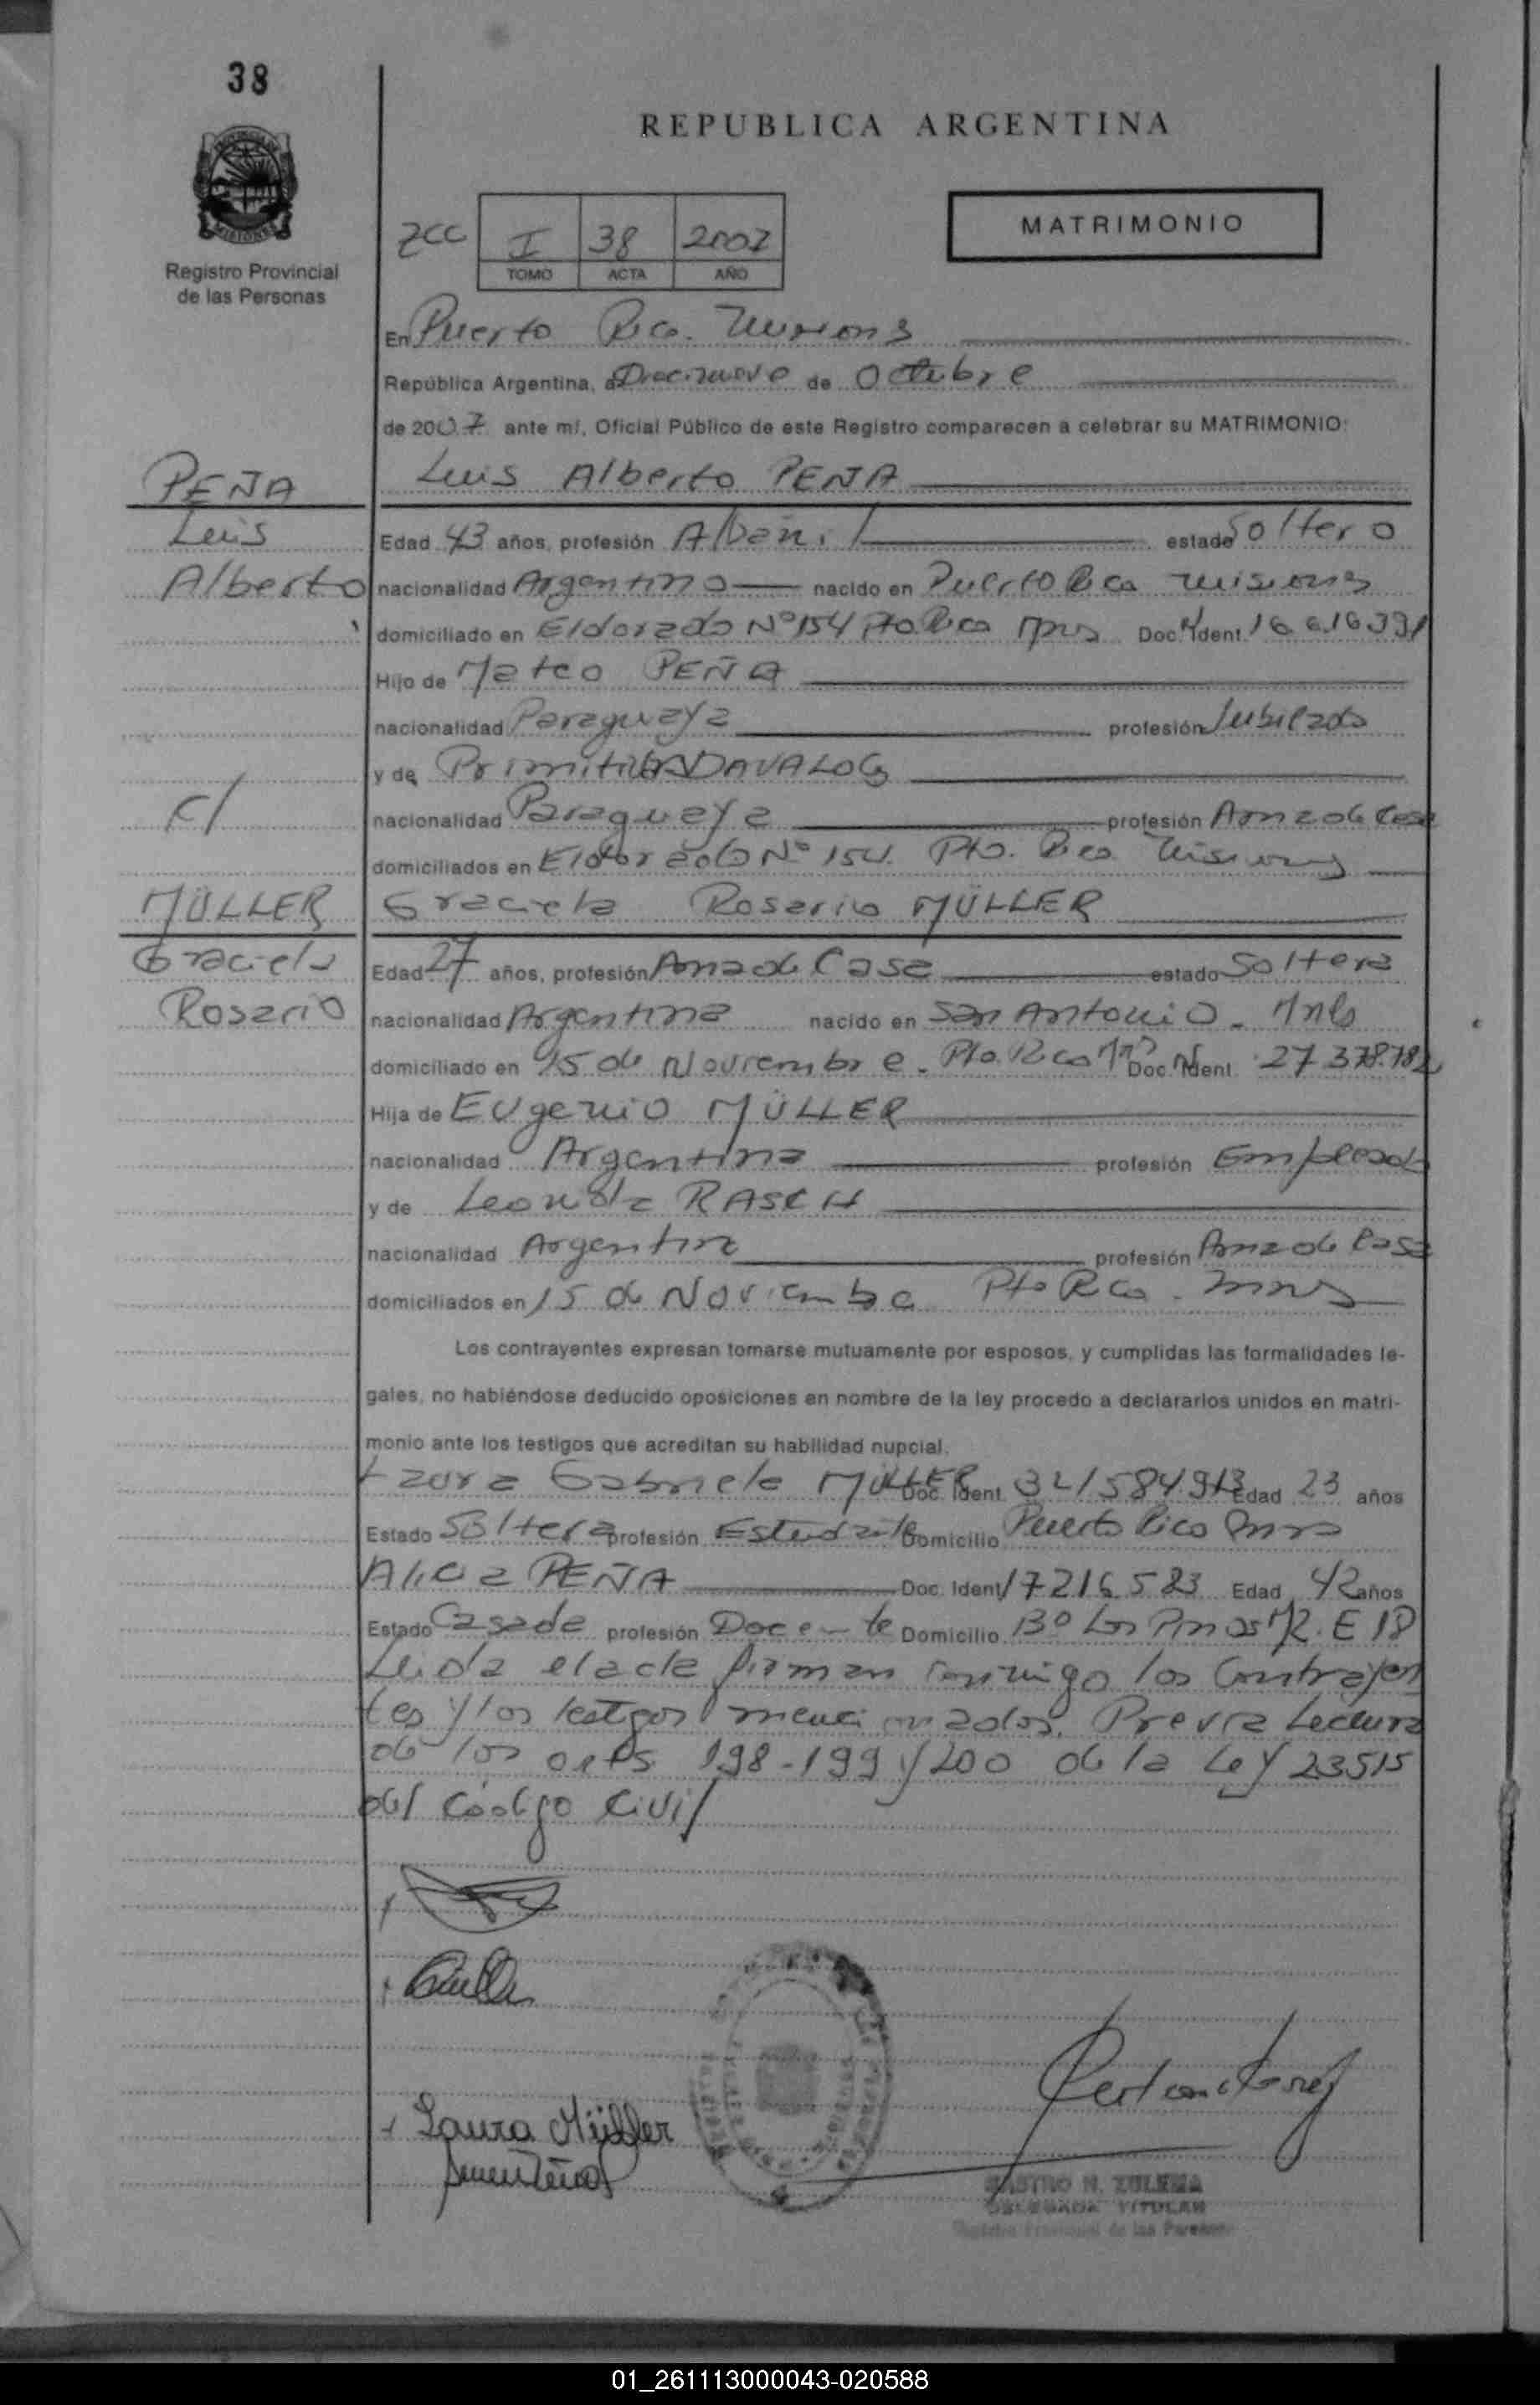 38
REPUBLICA ARGENTINA
MISIONES
Registro Provincial
de las Personas
ZCC I 38 2007
TOMO ACTA AÑO
MATRIMONIO
En Puerto Rico. Misiones
República Argentina, a Diecinueve de Octubre
de 2007 ante mí, Oficial Público de este Registro comparecen a celebrar su MATRIMONIO:
PEÑA
Luis Alberto PEÑA
Luis
Edad 43 años, profesión Albañil estado Soltero
Alberto
nacionalidad Argentino nacido en Puerto Rico Misiones
domiciliado en Eldorado Nº 154 Pto. Rico Mns Doc. Ident. 16.616.391
Hijo de Mateo PEÑA
nacionalidad Paraguaya profesión Jubilado
y de Primitiva DAVALOS
c/
nacionalidad Paraguaya profesión Ama de Casa
domiciliados en Eldorado Nº 154. Pto. Rico Misiones
MÜLLER
Graciela Rosario MÜLLER
Graciela
Edad 27 años, profesión Ama de Casa estado Soltera
Rosario
nacionalidad Argentina nacido en San Antonio - Mns
domiciliado en 15 de Noviembre - Pto. Rico Mns Doc. Ident. 27.378.782
Hija de Eugenio MÜLLER
nacionalidad Argentina profesión Empleado
y de Leonida RASCH
nacionalidad Argentina profesión Ama de Casa
domiciliados en 15 de Noviembre Pto Rico - Mns
Los contrayentes expresan tomarse mutuamente por esposos, y cumplidas las formalidades le-
gales, no habiéndose deducido oposiciones en nombre de la ley procedo a declararlos unidos en matri-
monio ante los testigos que acreditan su habilidad nupcial.
Laura Gabriela MÜLLER Doc. Ident. Edad 23 años
Estado Soltera profesión Estudiante Domicilio Puerto Rico Mns
Alicia PEÑA Doc. Ident. 17216583 Edad 42 años
Estado Casada profesión Docente Domicilio Bº Los Pinos
Leida el acta firman conmigo los Contrayen
tes y los testigos mencionados. Previa Lectura
de los arts 198-199 y 200 de la Ley 23515
del Código Civil
Laura Müller
CASTRO N. ZULEMA
DELEGADA TITULAR
Registro Provincial de las Personas
01_261113000043-020588